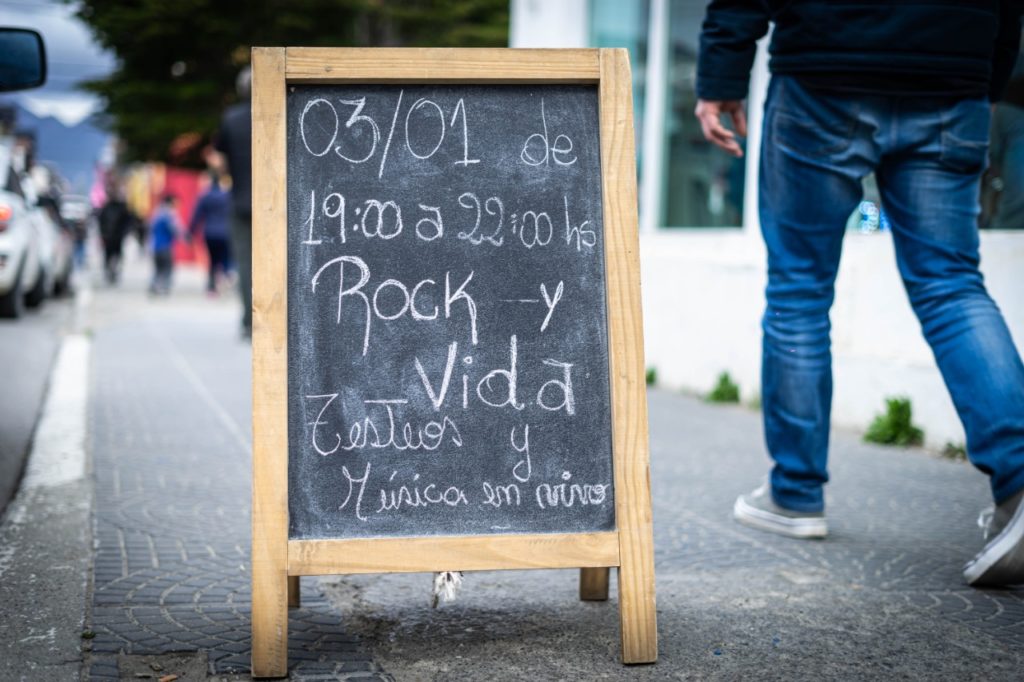 03/01 de
19:00 a 22:00 hs
Rock - y
- Vida
Testeos y
Música en vivo